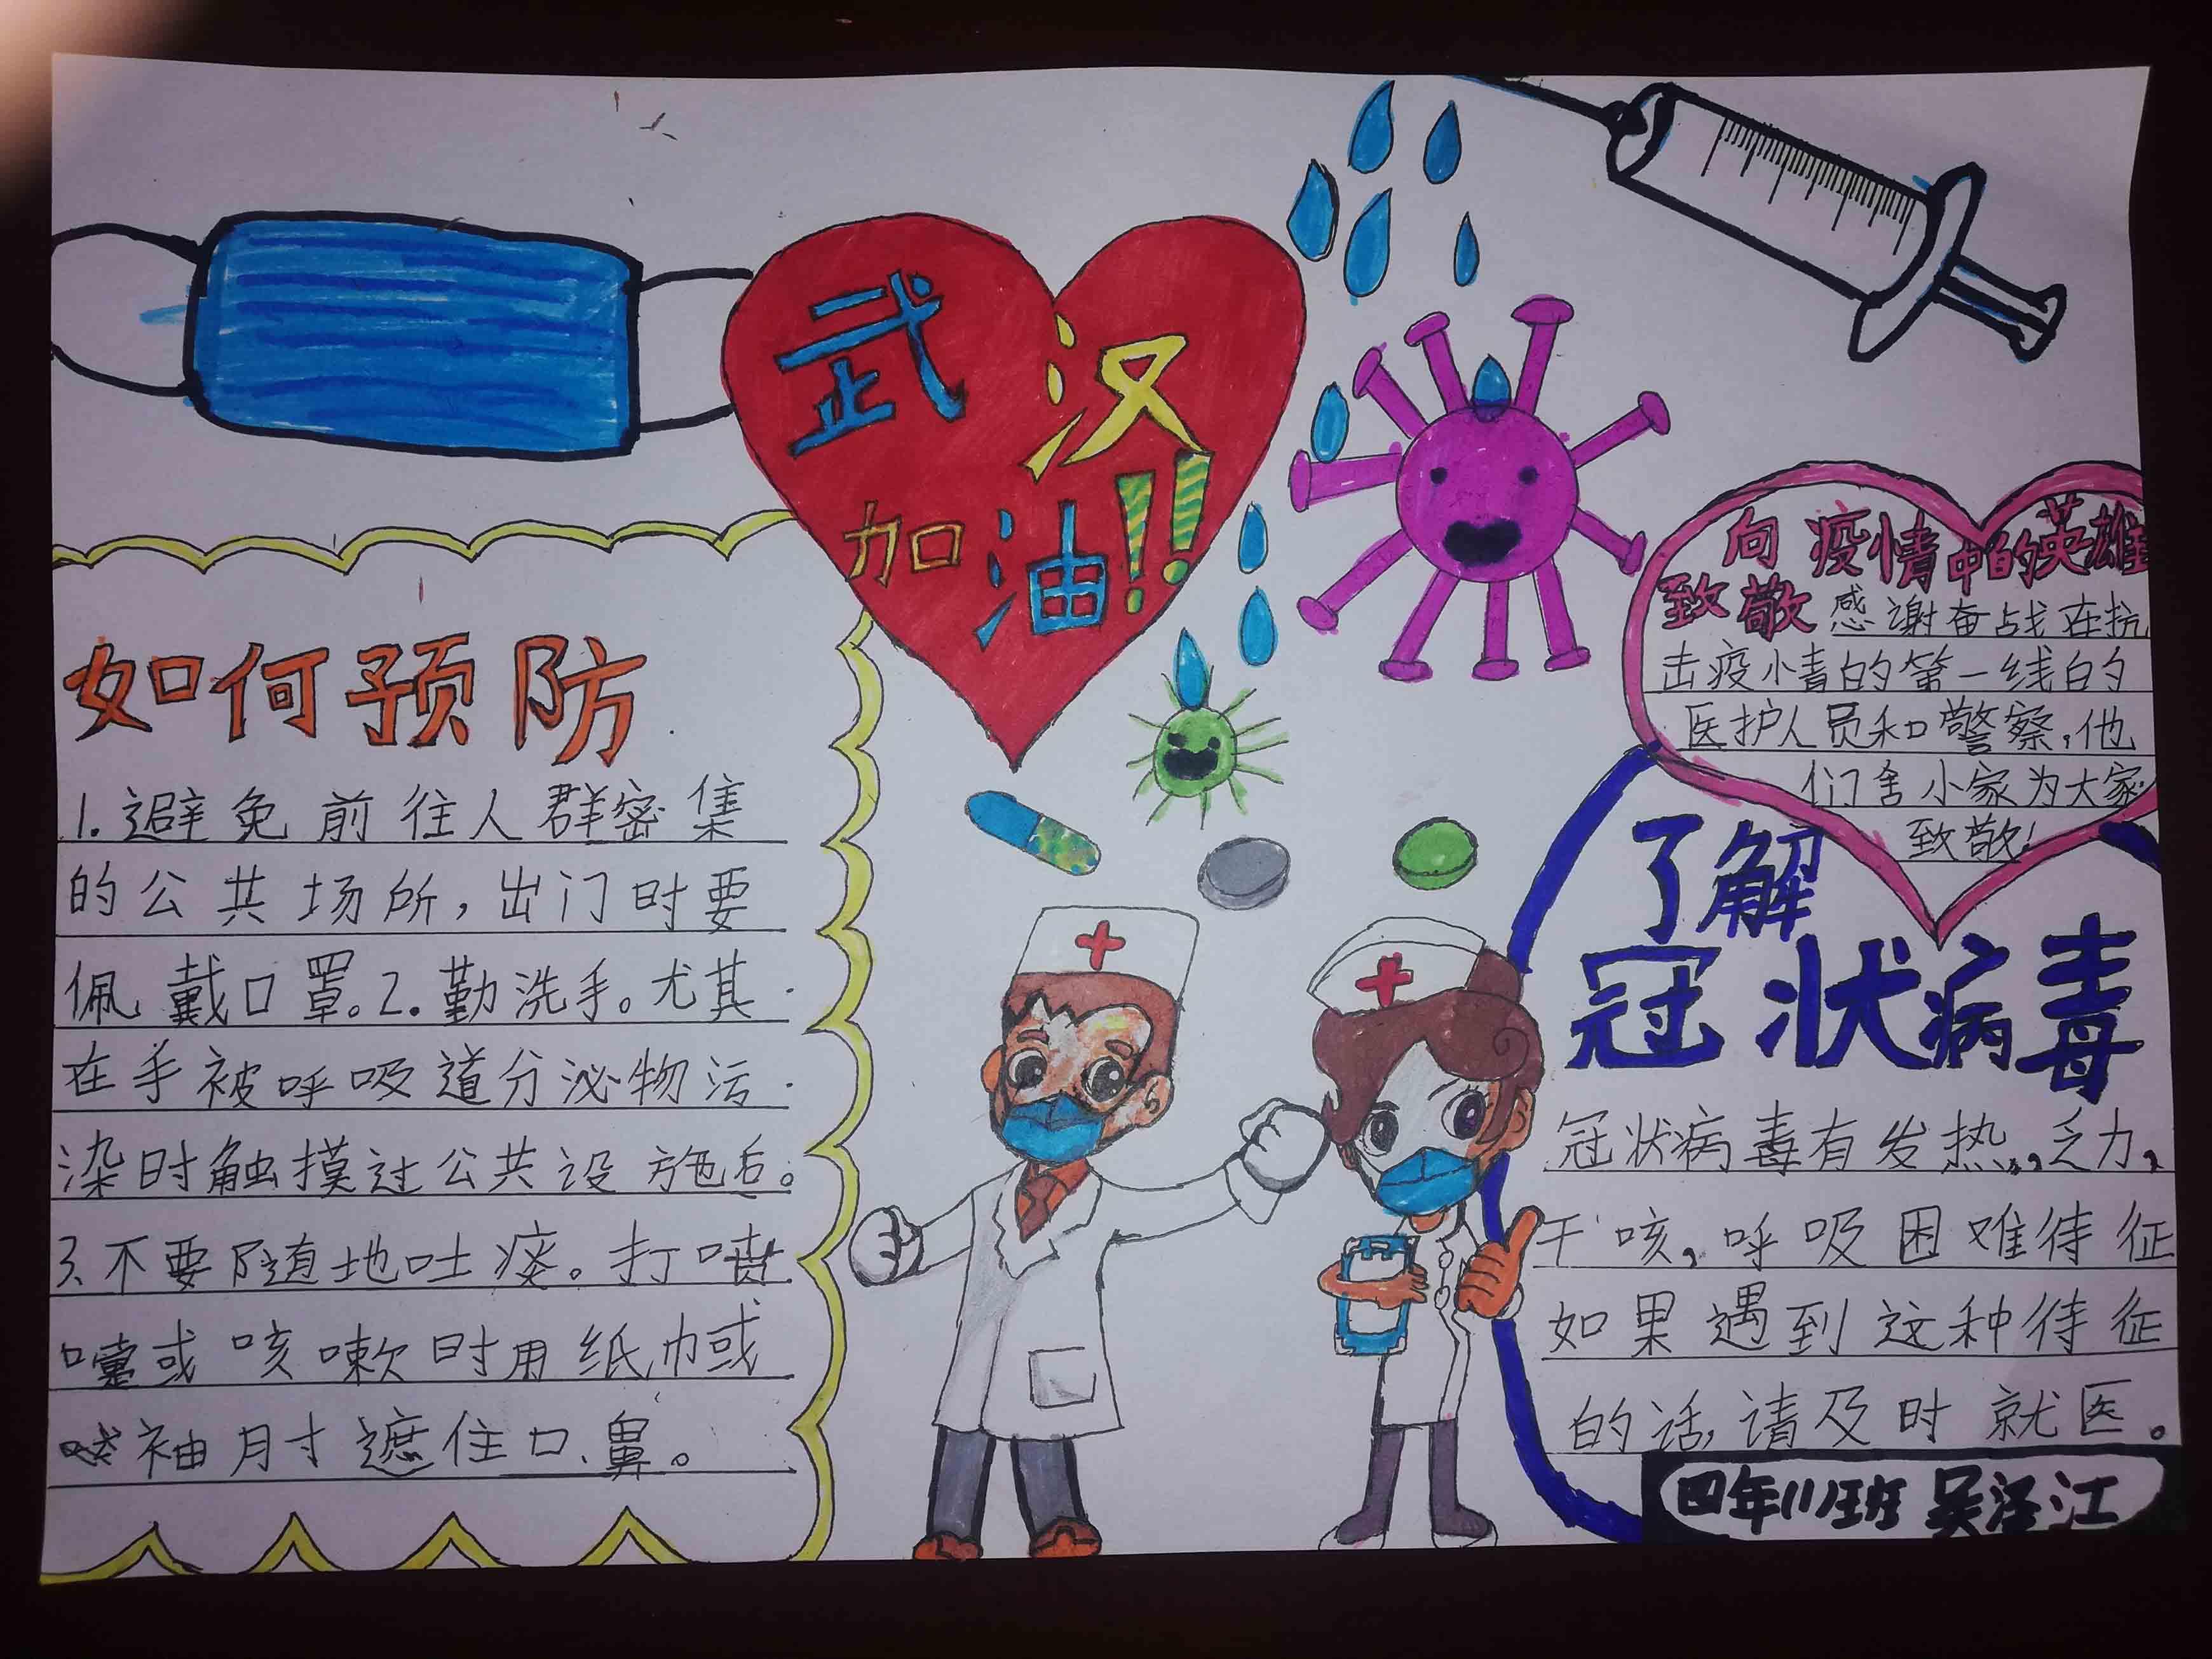 武汉
加油!!
如何预防
1.避免前往人群密集
的公共场所,出门时要
佩戴口罩。2.勤洗手。尤其
在手被呼吸道分泌物污
染时触摸过公共设施后。
3.不要随地吐痰。打喷
嚏或咳嗽时用纸巾或
袖肘遮住口、鼻。
向疫情中的英雄
致敬 感谢奋战在抗
击疫情的第一线的
医护人员和警察,他
们舍小家为大家
致敬!
了解
冠状病毒
冠状病毒有发热,乏力,
干咳,呼吸困难待征
如果遇到这种待征
的话,请及时就医。
四年(1)班 吴泽江